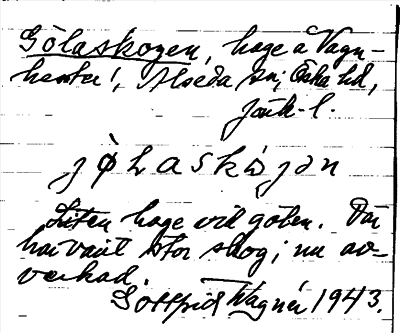 Gölaskogen, hage å Vagn-
hester, Alseda sn; Östra hd,
Jönk. l.
jø̀laskòjən
Liten hage vid göten. Där
har varit stor skog; nu av-
verkad.
Gottfrid Wagnér 1943.